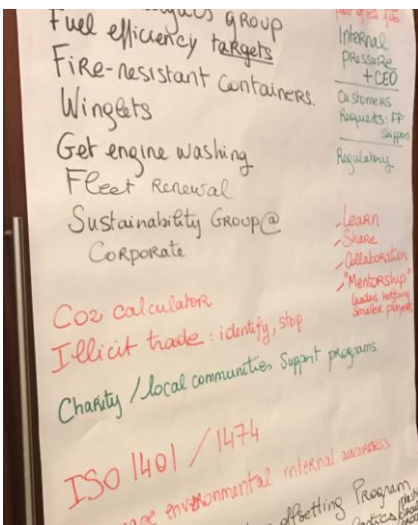 group
Fuel efficiency targets
Fire-resistant containers.
Winglets
Get engine washing
Fleet Renewal
Sustainability Group@
Corporate
CO2 calculator
Illicit trade: identify, stop
Charity / local communities support programs
ISO 1401 / 1474
environmental internal awareness
offsetting Program
Internal
pressure
+ CEO
Customers
Requests: FF
Shippers
Regulatory
- Learn
- Share
- Collaboration
- "Mentorship"
leaders helping
smaller players